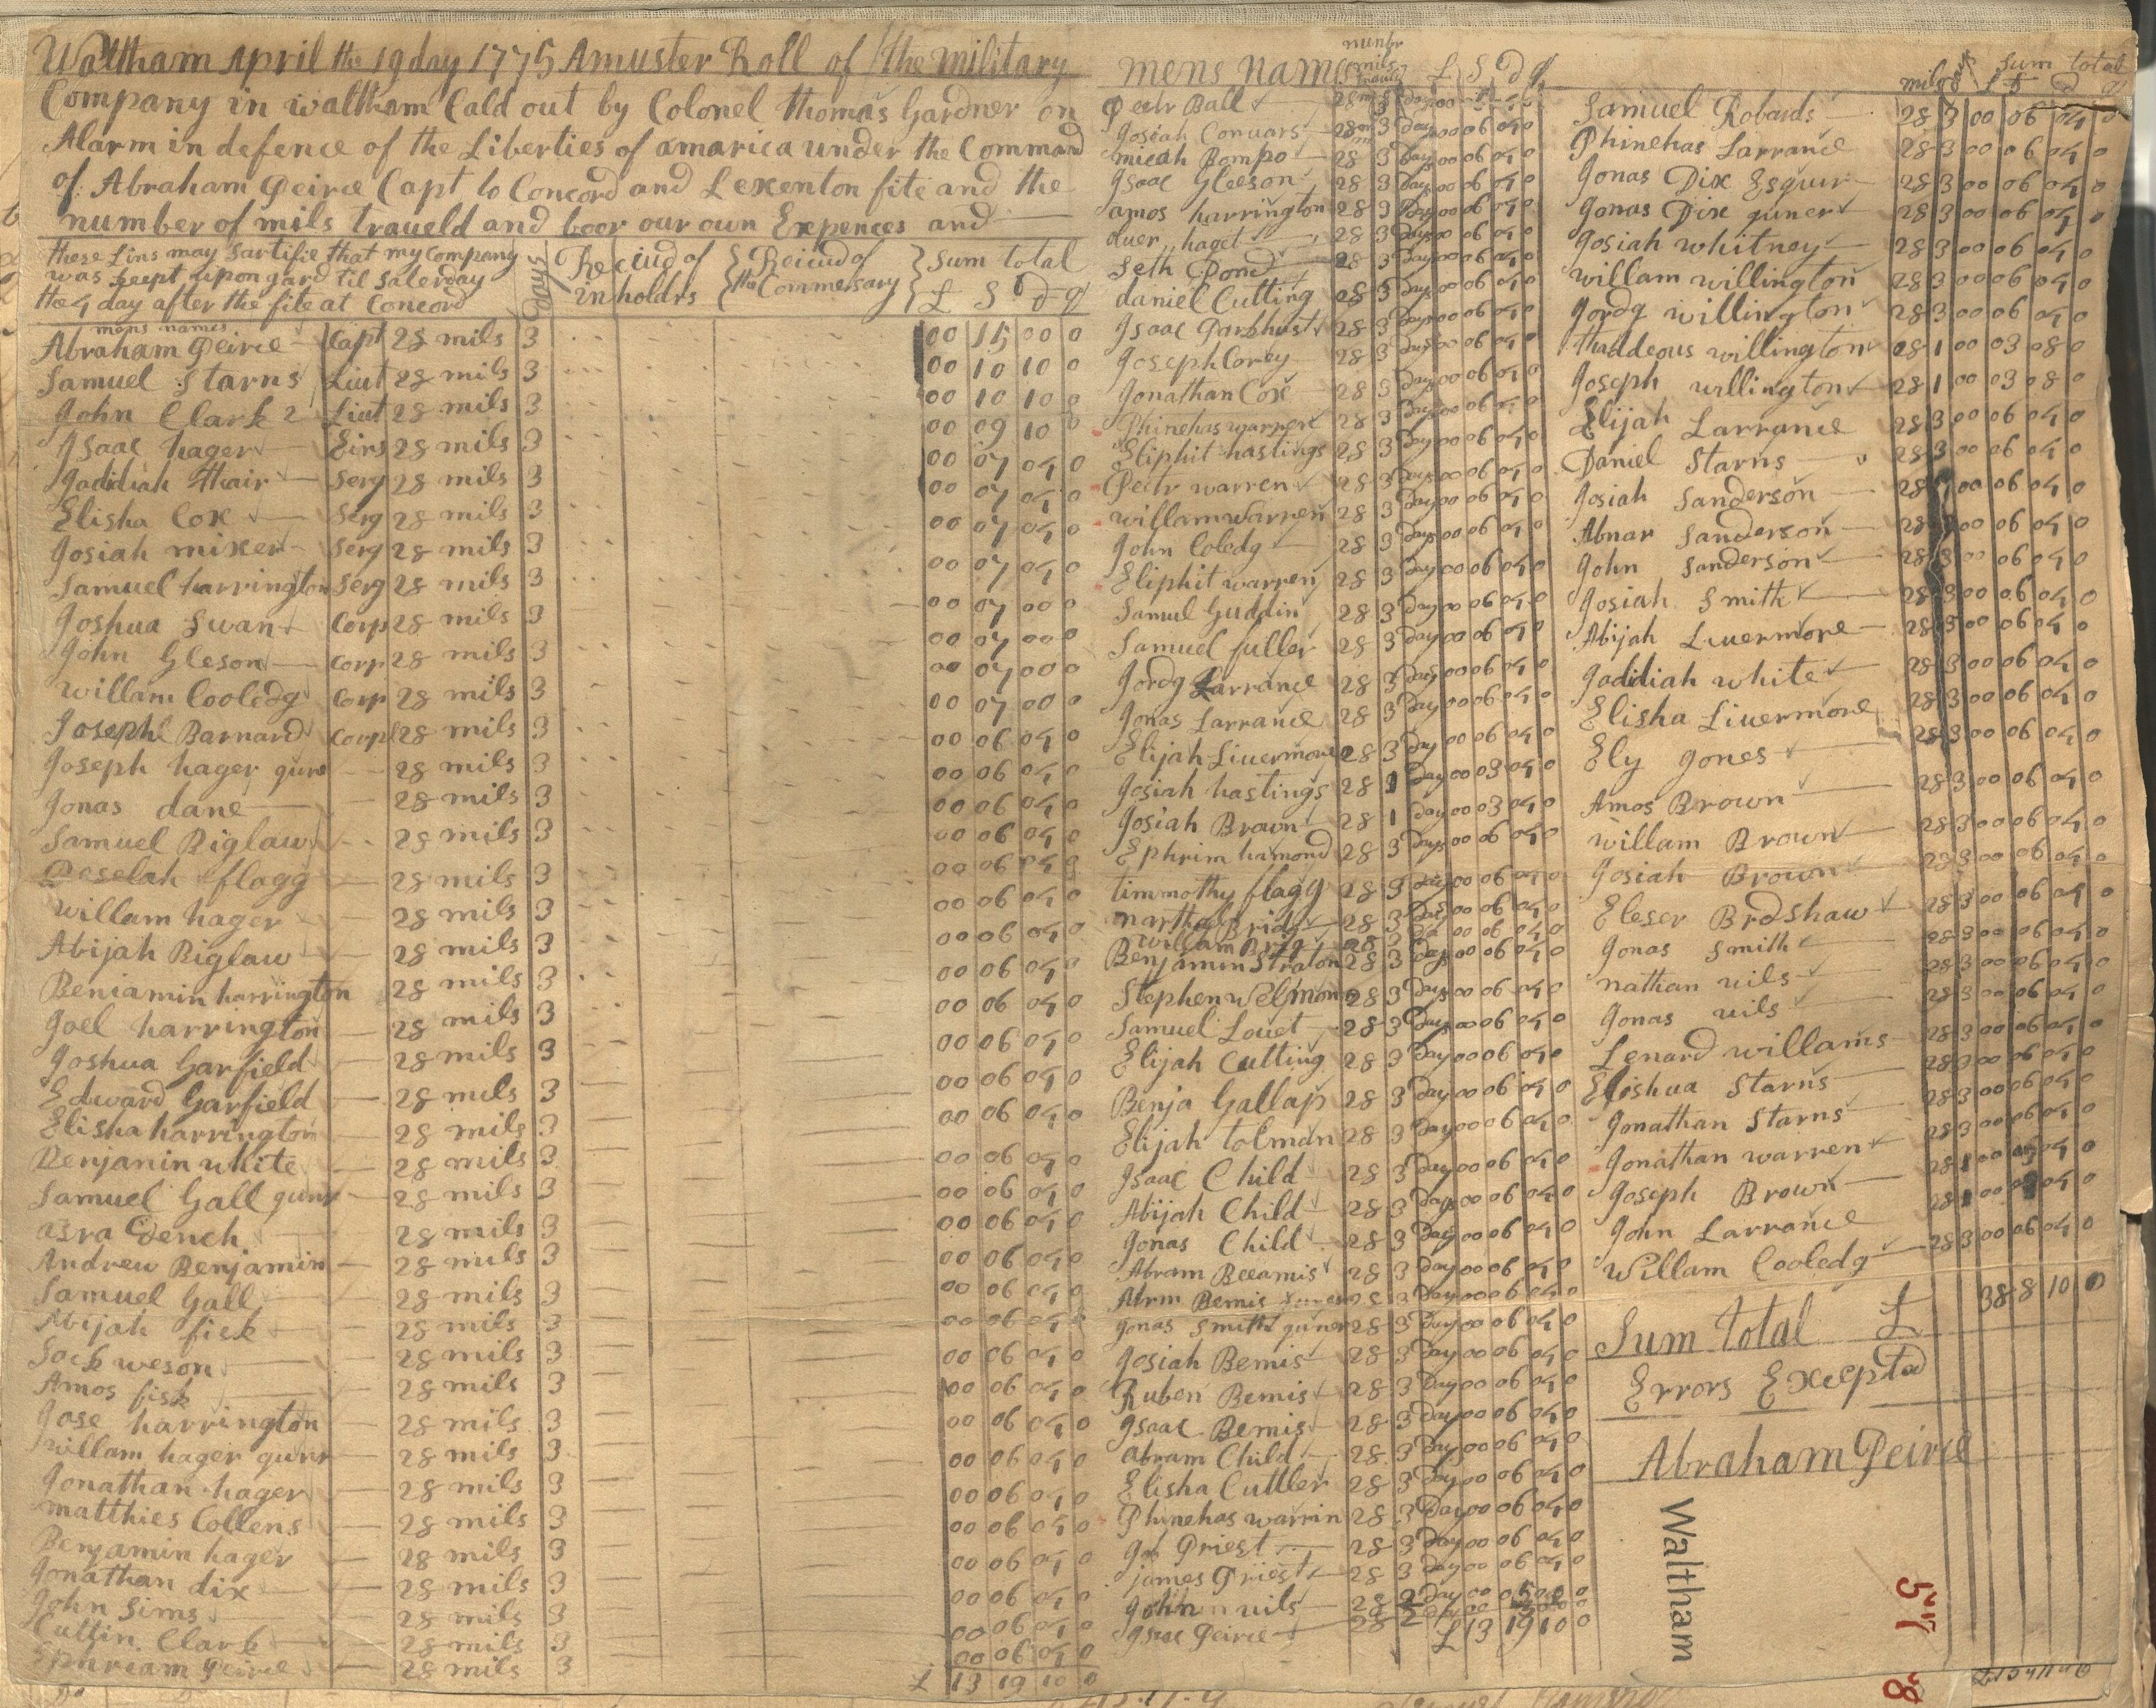 Waltham April the 19 day 1775 A muster Roll of the military
Company in waltham Cald out by Colonel thomas Gardner on
Alarm in defence of the Liberties of amarica under the Command
of Abraham Peirce Capt to Concord and Lexenton fite and the
number of mils traueld and boor our own Expences and
these Lins may Sartifie that my Company
was keept upon gard til Saterday
the 4 day after the fite at Concord
days
Reciud of
inholdrs
Reciud of
the Commersary
Sum total
£ S d q
mens names
Abraham Peirce Capt 28 mils 3 00 15 00 0
Samuel Starns Liut 28 mils 3 00 10 10 0
John Clark 2 Liut 28 mils 3 00 10 10 0
Isaac hager Eins 28 mils 3 00 09 10 0
Jadidiah thair Serg 28 mils 3 00 07 04 0
Elisha Cox Serg 28 mils 3 00 07 04 0
Josiah mixer Serg 28 mils 3 00 07 04 0
Samuel harrington Serg 28 mils 3 00 07 04 0
Joshua Swan Corp 28 mils 3 00 07 00 0
John Gleson Corp 28 mils 3 00 07 00 0
Willam Cooledg Corp 28 mils 3 00 07 00 0
Joseph Barnard Corpl 28 mils 3 00 07 00 0
Joseph hager gunr 28 mils 3 00 06 04 0
Jonas dane 28 mils 3 00 06 04 0
Samuel Biglaw 28 mils 3 00 06 04 0
Peselah flagg 28 mils 3 00 06 04 0
Willam hager 28 mils 3 00 06 04 0
Abijah Biglaw 28 mils 3 00 06 04 0
Beniamin harrington 28 mils 3 00 06 04 0
Joel harrington 28 mils 3 00 06 04 0
Joshua Garfield 28 mils 3 00 06 04 0
Edward Garfield 28 mils 3 00 06 04 0
Elisha harrington 28 mils 3 00 06 04 0
Benjamin white 28 mils 3 00 06 04 0
Samuel Gall gunr 28 mils 3 00 06 04 0
asra Dench 28 mils 3 00 06 04 0
Andrew Benjamin 28 mils 3 00 06 04 0
Samuel Gall 28 mils 3 00 06 04 0
Abijah fisk 28 mils 3 00 06 04 0
Jack weson 28 mils 3 00 06 04 0
Amos fisk 28 mils 3 00 06 04 0
Jose harrington 28 mils 3 00 06 04 0
willam hager gunr 28 mils 3 00 06 04 0
Jonathan hager 28 mils 3 00 06 04 0
matthies Collens 28 mils 3 00 06 04 0
Benjamin hager 28 mils 3 00 06 04 0
Jonathan dix 28 mils 3 00 06 04 0
John Sims 28 mils 3 00 06 04 0
Cuttin Clark 28 mils 3 00 06 04 0
Ephream Peirce 28 mils 3 00 06 04 0
£ 13 19 10 0
mens names
numbr
mils
£ S d q
Petr Ball 28 3 day 00
Josiah Conuars 28 3 day 00 06 04 0
micah Bompo 28 3 day 00 06 04 0
Isaac Gleeson 28 3 day 00 06 04 0
amos harrington 28 3 Day 00 06 04 0
duer haget 28 3 day 00 06 04 0
Seth Pond 28 3 Day 00 06 04 0
daniel Cutting 28 3 Day 00 06 04 0
Isaac Parkhust 28 3 Days 00 06 04 0
Joseph Corey 28 3 days 00 06 04 0
Jonathan Cox 28 3 Day 00 06 04 0
Phinehas warren 28 3 Day 00 06 04 0
Eliphit hastings 28 3 Day 00 06 04 0
Petr warren 28 3 Day 00 06 04 0
willam warren 28 3 Day 00 06 04 0
John Coledg 28 3 Days 00 06 04 0
Eliphit warren 28 3 Day 00 06 04 0
Samul Guddin 28 3 Day 00 06 04 0
Samuel fuller 28 3 Day 00 06 04 0
Jordg Larrance 28 3 Day 00 06 04 0
Jonas Larrance 28 3 Day 00 06 04 0
Elijah Liuermore 28 3 Day 00 06 04 0
Josiah hastings 28 1 Day 00 03 04 0
Josiah Brown 28 1 Day 00 03 04 0
Ephrim hamond 28 3 Days 00 06 04 0
timmothy flagg 28 3 days 00 06 04 0
martha Bridg 28 3 Day 00 06 04 0
willam Brig 28 3 00 06 04 0
Benjamin Straton 28 3 Days 00 06 04 0
Stephen Welman 28 3 Days 00 06 04 0
Samuel Louet 28 3 Days 00 06 04 0
Elijah Cutting 28 3 Day 00 06 04 0
Benja Gallap 28 3 Day 00 06 04 0
Elijah tolman 28 3 Day 00 06 04 0
Isaac Child 28 3 Day 00 06 04 0
Abijah Child 28 3 Days 00 06 04 0
Jonas Child 28 3 Day 00 06 04 0
Abram Beeamis 28 3 Day 00 06 04 0
Abrm Bemis 28 3 Day 00 06 04 0
Jonas Smith guner 28 3 Day 00 06 04 0
Josiah Bemis 28 3 Day 00 06 04 0
Ruben Bemis 28 3 Day 00 06 04 0
Isaac Bemis 28 3 Day 00 06 04 0
abram Child 28 3 Day 00 06 04 0
Elisha Cuttler 28 3 Day 00 06 04 0
Phinehas warrin 28 3 Day 00 06 04 0
Priest 28 3 Day 00 06 04 0
james Priest 28 3 day 00 06 04 0
John uils 28 2 Day 00
Isac Peirce 28 2
£ 13 19 10 0
mils days Sum total
Samuel Robards 28 3 00 06 04 0
Phinehas Larrance 28 3 00 06 04 0
Jonas Dix Esquir 28 3 00 06 04 0
Jonas Dix guner 28 3 00 06 04 0
Josiah whitney 28 3 00 06 04 0
willam willington 28 3 00 06 04 0
Jordg willington 28 3 00 06 04 0
thaddeous willington 28 1 00 03 08 0
Joseph willington 28 1 00 03 08 0
Elijah Larrance 28 3 00 06 04 0
Daniel Starns 28 3 00 06 04 0
Josiah Sanderson 28 00 06 04 0
Abnar Sanderson 28 00 06 04 0
John Sanderson 28 3 00 06 04 0
Josiah Smith 28 3 00 06 04 0
Abijah Liuermore 28 3 00 06 04 0
Jadidiah white 28 3 00 06 04 0
Elisha Liuermore 28 3 00 06 04 0
Ely Jones 28 3 00 06 04 0
Amos Brown 28 3 00 06 04 0
willam Brown 28 3 00 06 04 0
Josiah Brown 28 3 00 06 04 0
Eleser Brdshaw 28 3 00 06 04 0
Jonas Smith 28 3 00 06 04 0
nathan uils 28 3 00 06 04 0
Jonas uils 28 3 00 06 04 0
Lenard willams 28 3 00 06 04 0
Elishua Starns 28 3 00 06 04 0
Jonathan Starns 28 3 00 06 04 0
Jonathan warren 28 3 00 06 04 0
Joseph Brown 28 1 00 04 0
John Larrance 28 00 04 0
Willam Cooledg 28 3 00 06 04 0
Sum total £ 38 8 10 0
Errors Excepted
Abraham Peirce
Waltham
57
8